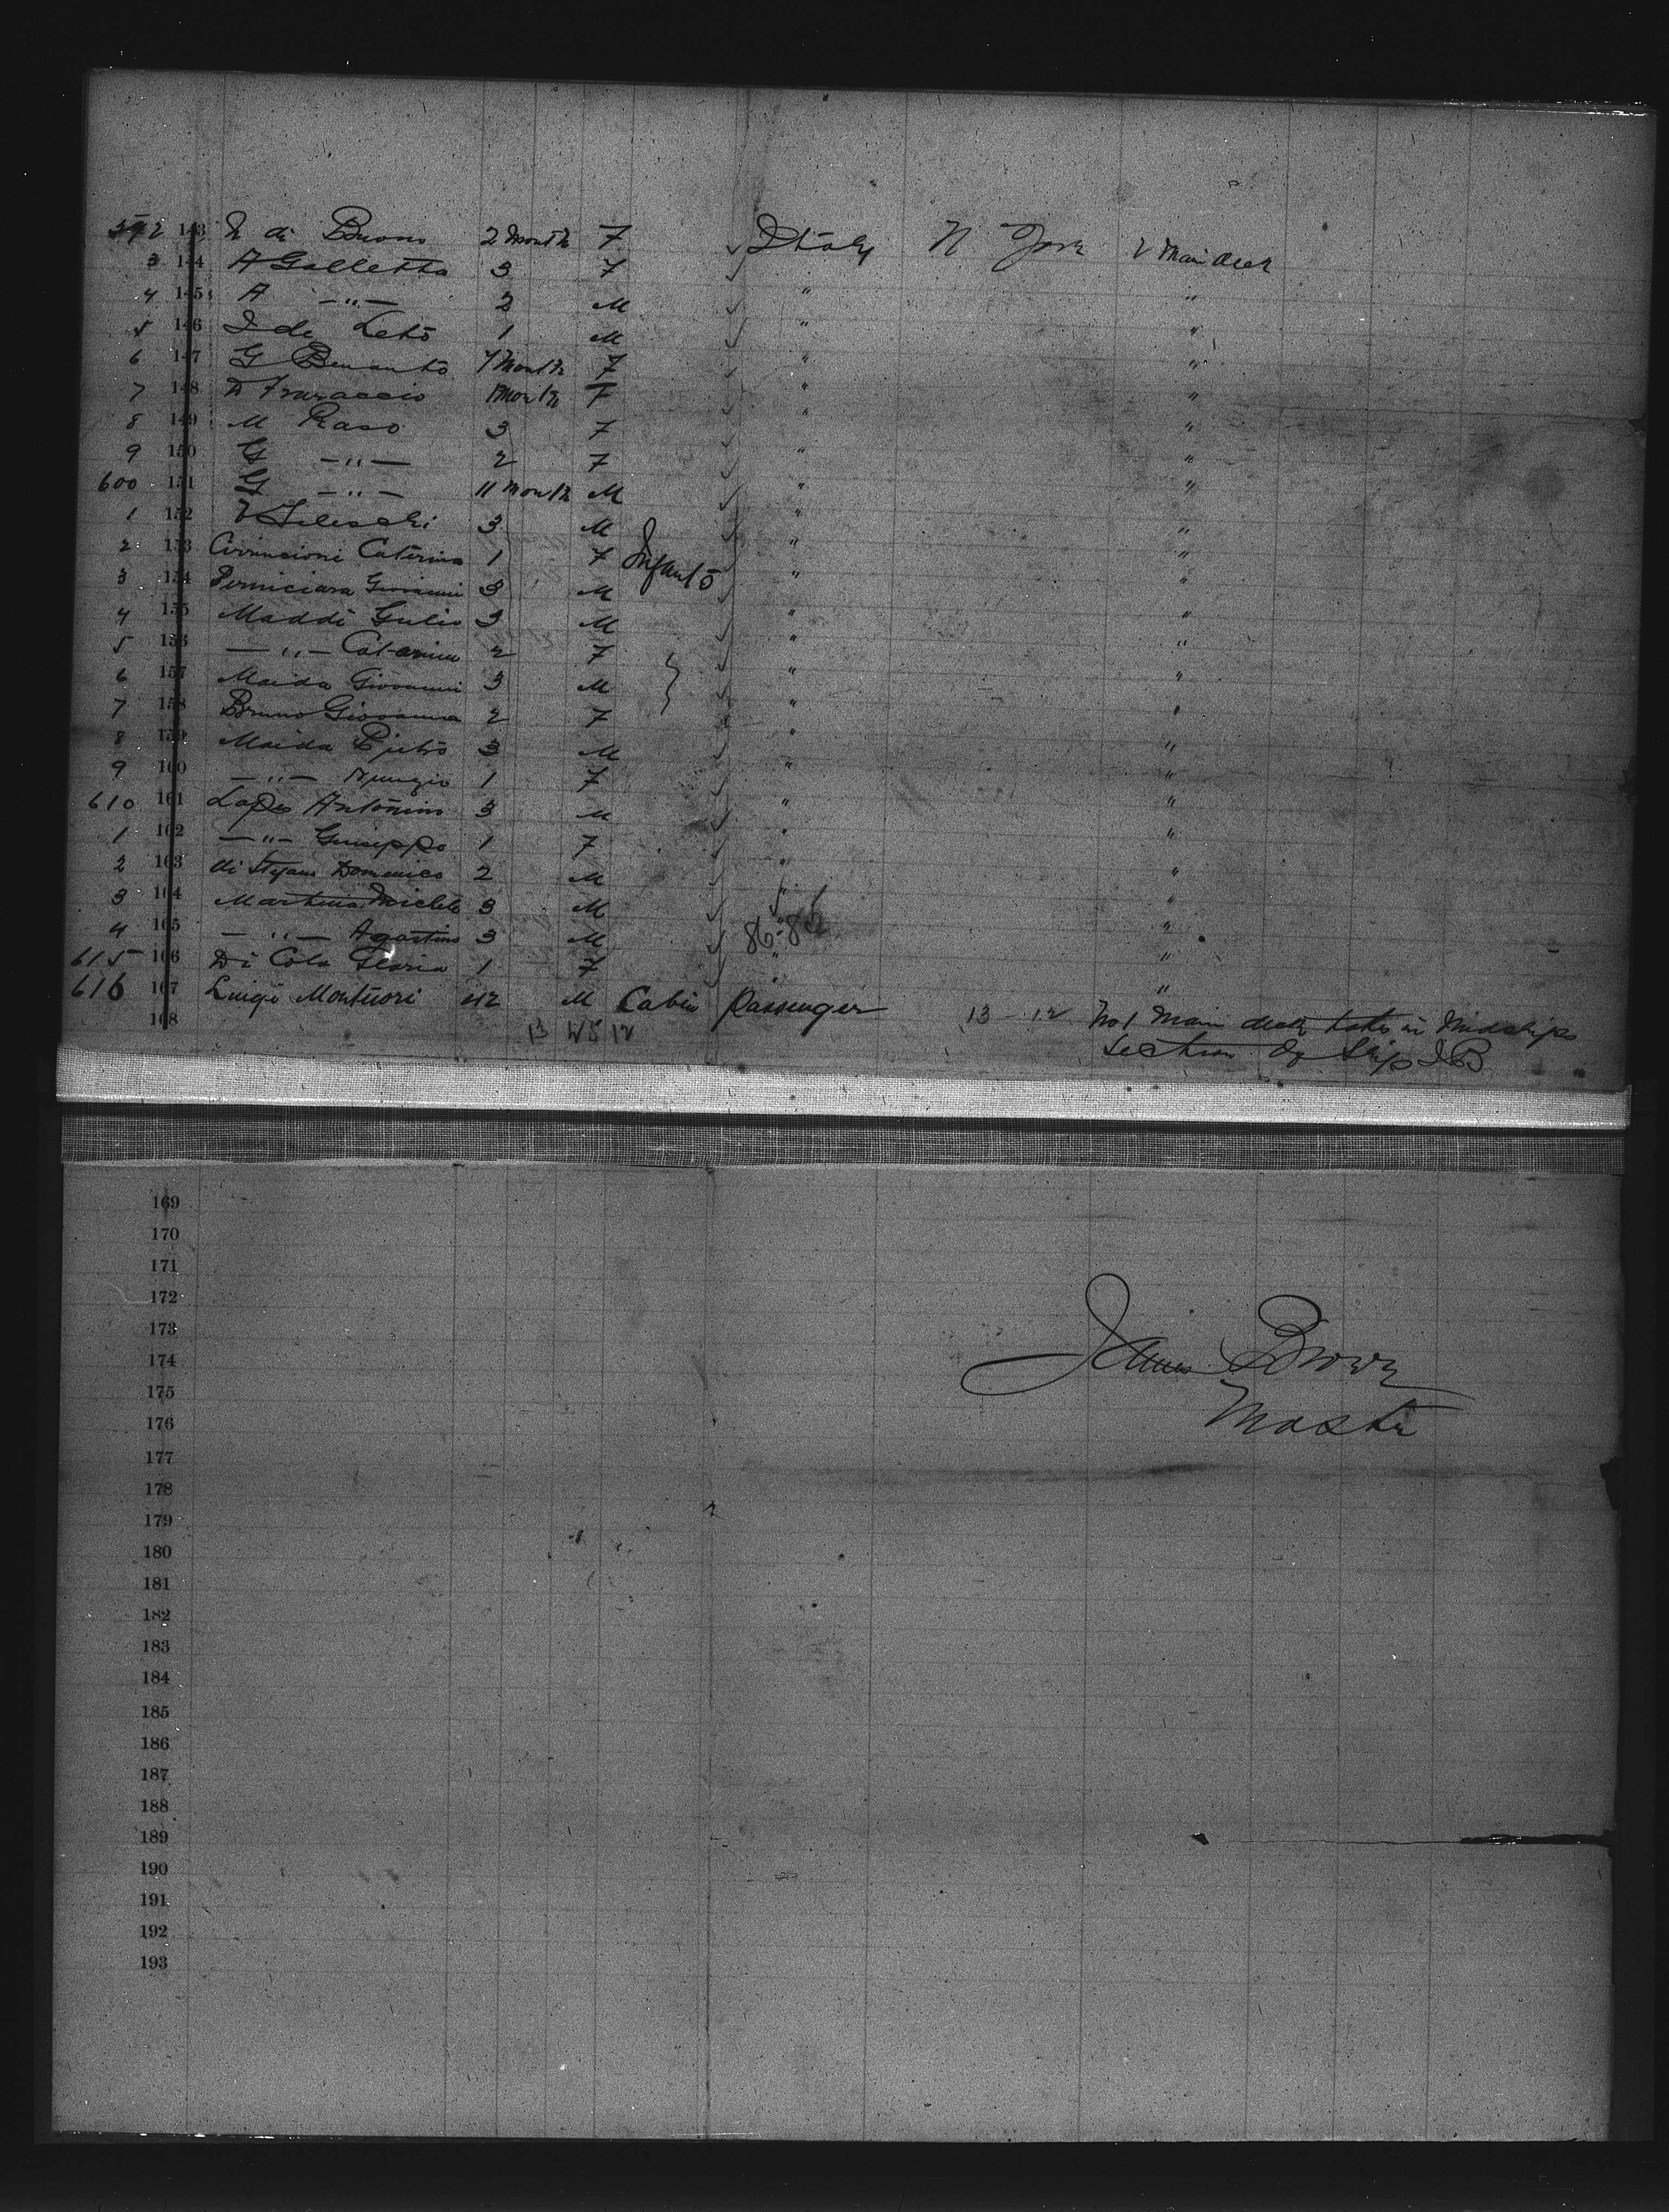 592 143 N di Buono 2 Month F Italy N York 2 Main deck
3 144 A Galletta 3 F "
4 145 A —"— 2 M " "
5 146 I de Leto 1 M " "
6 147 G Benanto 7 Month F " "
7 148 1 Month F " "
8 149 M Raso 3 F " "
9 150 G —"— 2 F " "
600 151 G —"— 11 Month M " "
1 152 3 M " "
2 153 Cirrincioni Caterina 1 F Infants " "
3 154 Perniciara Giovanni 3 M " "
4 155 Maddi Gulio 3 M " "
5 156 —"— Catarina 2 F " "
6 157 Maida Giovanni 3 M " "
7 158 Bruno Giovanna 2 F " "
8 159 Maida Pietro 3 M " "
9 160 —"— Nunzio 1 F " "
610 161 Lopes Antonino 3 M " "
1 162 —"— Giuseppe 1 F " "
2 163 di Stefano Domenico 2 M " "
3 164 Martino Michele 3 M " "
4 165 —"— Agostino 3 M 86-86 "
615 166 Di Cola Gloria 1 F " "
616 167 Luigi Montuori 42 M Cabin Passenger 13 - 12 No 1 Main deck Midships
168 13 W5 12 Section of Ship
169
170
171
172
173
174 James Brown
175
176 Master
177
178
179
180
181
182
183
184
185
186
187
188
189
190
191
192
193